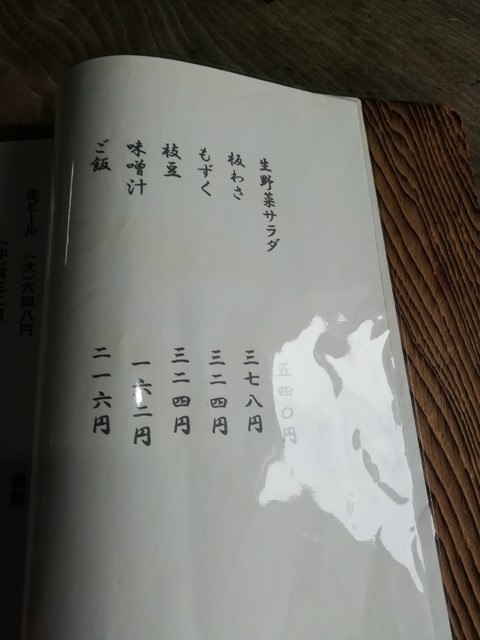 生野菜サラダ 五四〇円
板わさ 三七八円
もずく 三二四円
枝豆 三二四円
味噌汁 一六二円
ご飯 二一六円
生ビール (大)六四八円